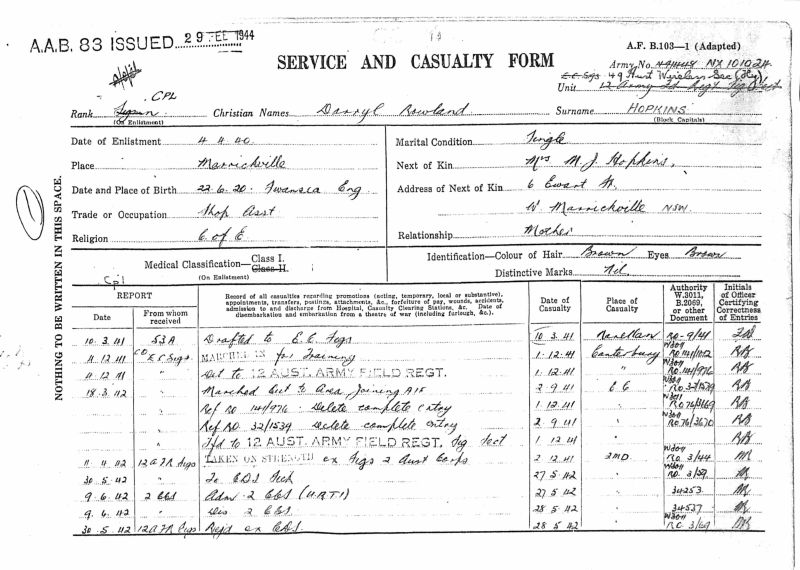 A.A.B. 83 ISSUED 29 FEB 1944
SERVICE AND CASUALTY FORM
A.F. B.103—1 (Adapted)
Army No. NX 101024
Unit 12 Army Fd Regt Sig Sect
CPL
Rank Sigmn Christian Names Darryl Rowland Surname HOPKINS
(On Enlistment) (Block Capitals)
Date of Enlistment 4 4 40
Place Marrickville
Date and Place of Birth 22.6.20. Swansea Eng
Trade or Occupation Shop Asst
Religion C of E
Marital Condition Single
Next of Kin Mrs M. J. Hopkins.
Address of Next of Kin 6 Ewart St.
W. Marrickville NSW.
Relationship Mother
Medical Classification—Class I.
Class II.
(On Enlistment)
Identification—Colour of Hair Brown Eyes Brown
Distinctive Marks Nil
NOTHING TO BE WRITTEN IN THIS SPACE.
Cpl
REPORT
Date
From whom received
Record of all casualties regarding promotions (acting, temporary, local or substantive), appointments, transfers, postings, attachments, &c., forfeiture of pay, wounds, accidents, admission to and discharge from Hospital, Casualty Clearing Stations, &c. Date of disembarkation and embarkation from a theatre of war (including furlough, &c.).
Date of Casualty
Place of Casualty
Authority W.3011, B.2069, or other Document
Initials of Officer Certifying Correctness of Entries
10.3.41 53A Drafted to E.C. Sigs 10 3.41 RO-9/41
11 12 41 CO EC Sigs MARCHED IN for Training 1.12.41 Canterbury W3011 RO 141/1012 RB
11 12 41 " Det to 12 AUST. ARMY FIELD REGT. 1.12.41 " W3011 RO.141/976 RB
18.3.42 " Marched Out to Area Joining AIF 2 9.41 EC W3011 RO.32/1539 RB
" Ref RO 141/976 - Delete complete entry 1.12.41 " W3011 RO 76/3669 RB
" Ref RO 32/1539 Delete complete entry 2 9 41 " W3011 RO.76/3670 RB
" Tfd to 12 AUST. ARMY FIELD REGT. Sig Sect 1 12 41 " RB
11 4 42 12 A F R Sigs TAKEN ON STRENGTH ex Sigs 2 Aust Corps 2 12.41 3MD W3011 RO. 3/44
30 5.42 " To CDS Sick 27 5 42 " W3011 RO. 3/59
9.6.42 2 CCS Adm 2 CCS (U.R.T.I) 27 5 42 " 34253
9.6.42 " Dis 2 CCS 28 5 42 " 34537
30 5.42 12 A F R Sigs Rejd ex CDS 28 5 42 " W3011 RO 3/69